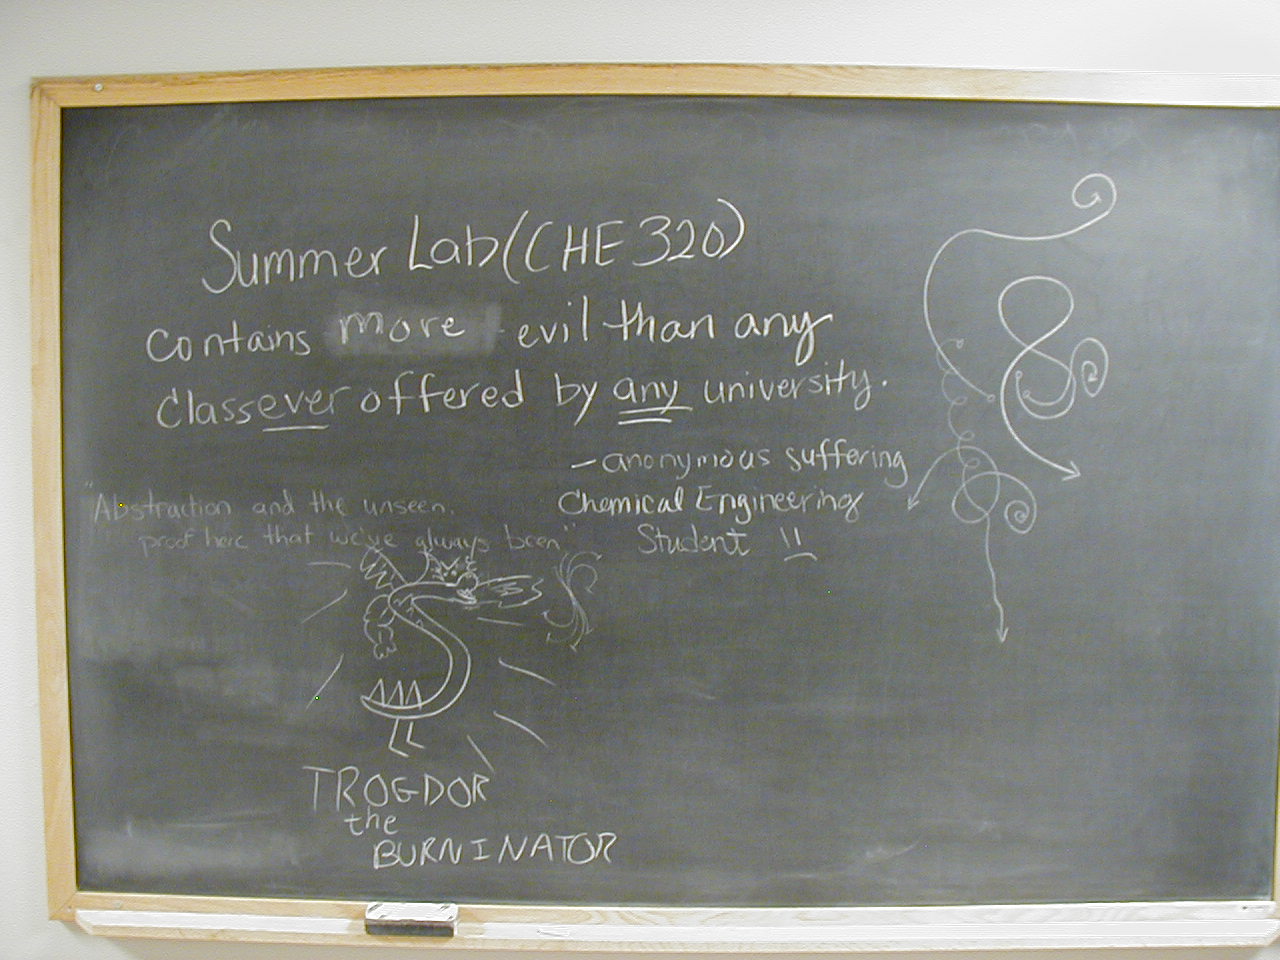 Summer Lab (CHE 320)
contains more evil than any
class ever offered by any university.
- anonymous suffering
Chemical Engineering
Student !!
"Abstraction and the unseen.
proof here that we've always been"
TROGDOR
the
BURNINATOR